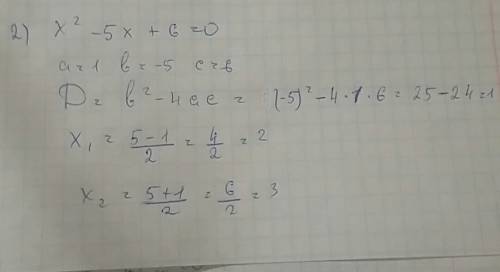 2) x² - 5x + 6 = 0
a = 1 b = -5 c = 6
D = b² - 4ac = (-5)² - 4 · 1 · 6 = 25 - 24 = 1
x₁ = (5 - 1)/2 = 4/2 = 2
x₂ = (5 + 1)/2 = 6/2 = 3